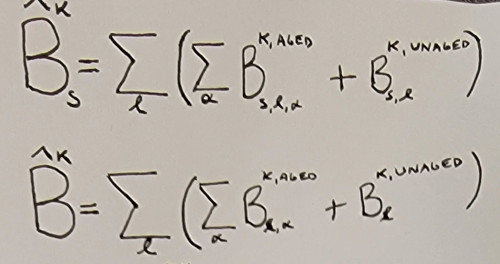 B̂ᴷₛ = Σ_ℓ (Σ_α B_{s,ℓ,α}^{K,AGED} + B_{s,ℓ}^{K,UNAGED})
B̂ᴷ = Σ_ℓ (Σ_α B_{ℓ,α}^{K,AGED} + B_ℓ^{K,UNAGED})